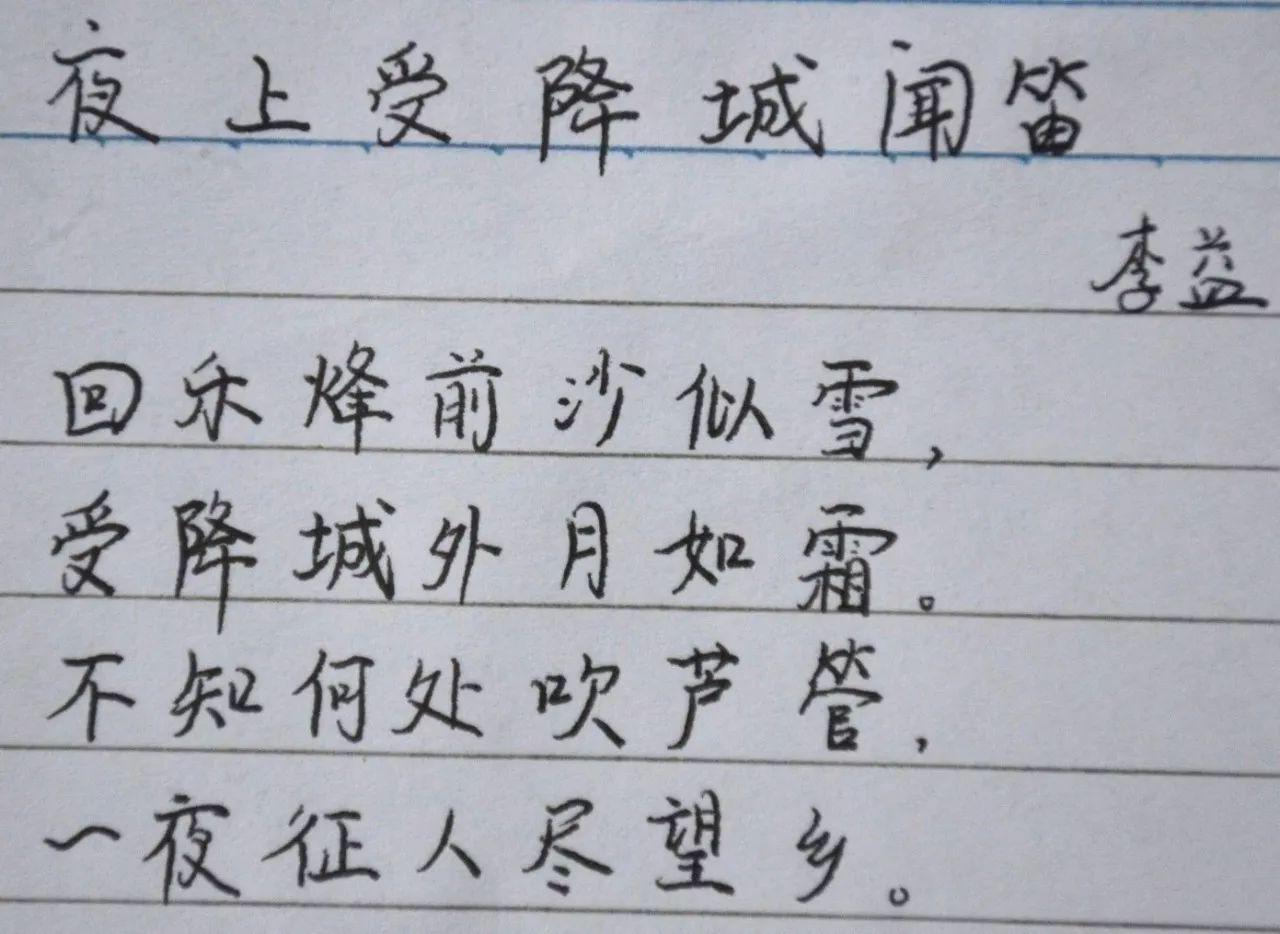 夜上受降城闻笛
李益
回乐烽前沙似雪，
受降城外月如霜。
不知何处吹芦管，
一夜征人尽望乡。